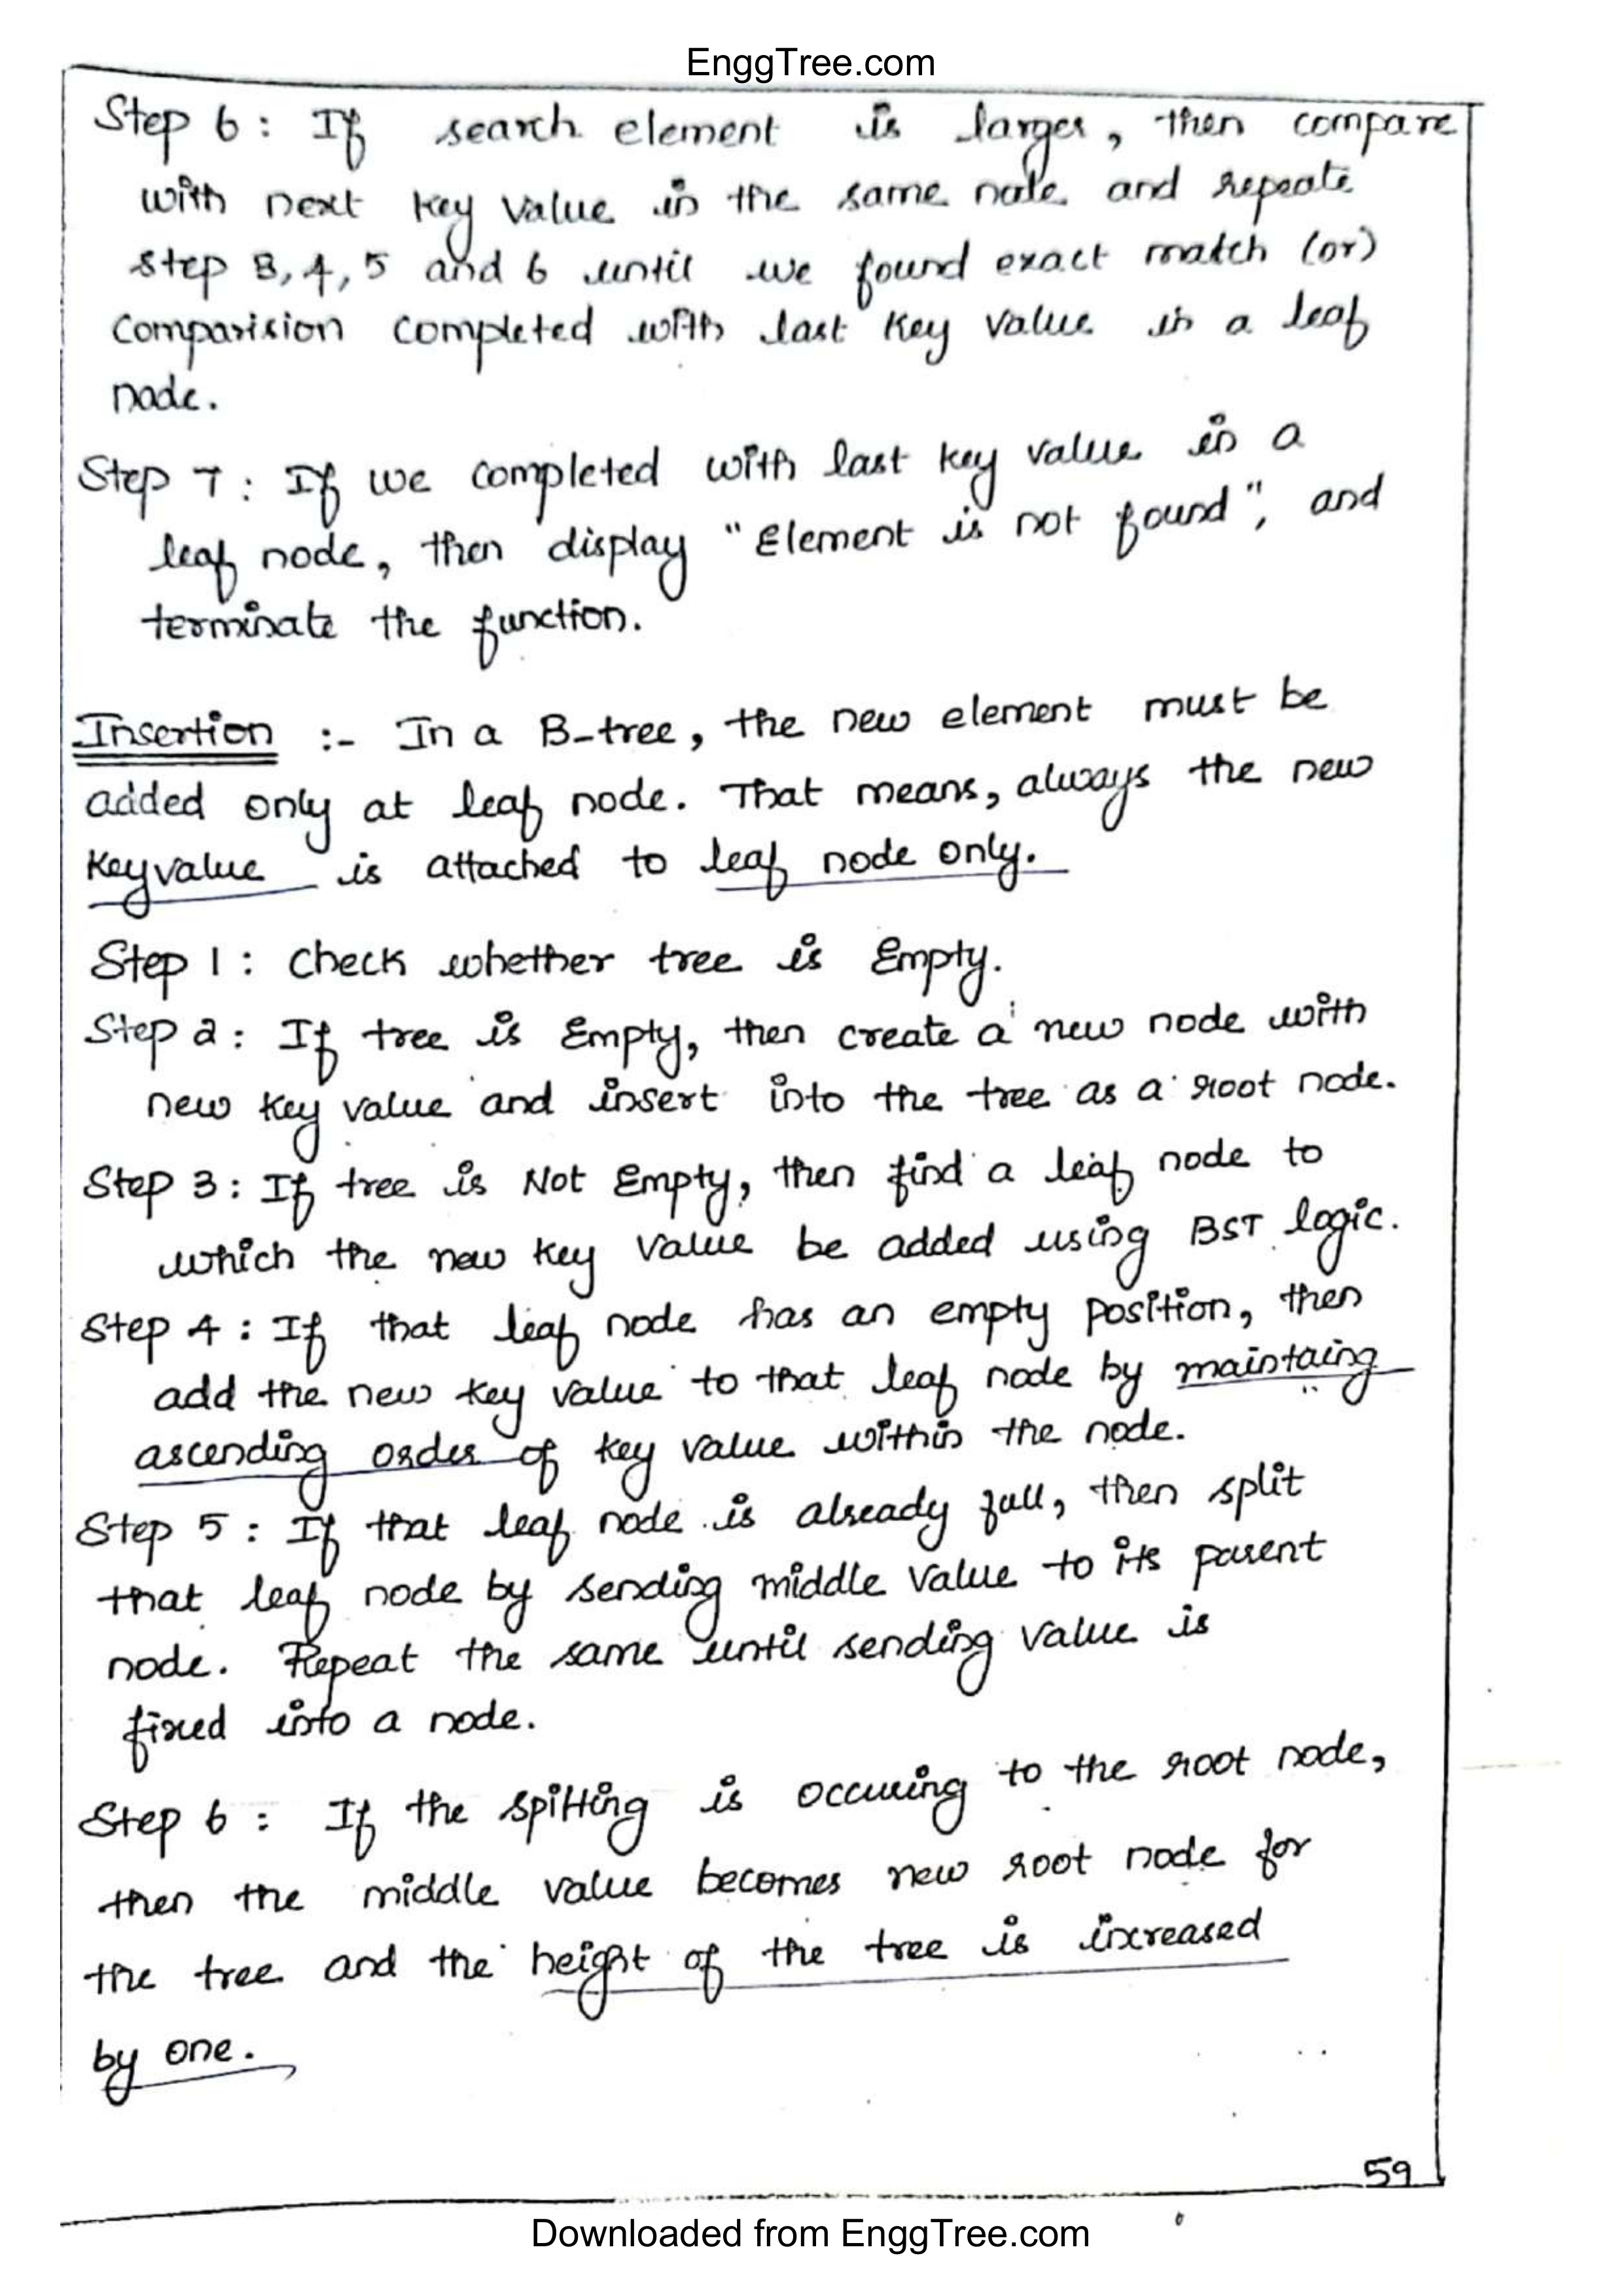 EnggTree.com
Step 6 : If search element is larger, then compare
with next key value in the same node and repeate
step 3, 4, 5 and 6 until we found exact match (or)
Comparision completed with last key value in a leaf
node.
Step 7 : If we completed with last key value in a
leaf node, then display "Element is not found", and
terminate the function.
Insertion :- In a B-tree, the new element must be
added only at leaf node. That means, always the new
Keyvalue is attached to leaf node only.
Step 1 : Check whether tree is Empty.
Step 2 : If tree is Empty, then create a new node with
new key value and insert into the tree as a root node.
Step 3 : If tree is Not Empty, then find a leaf node to
which the new key value be added using BST logic.
Step 4 : If that leaf node has an empty position, then
add the new key value to that leaf node by maintaing
ascending order of key value within the node.
Step 5 : If that leaf node is already full, then split
that leaf node by sending middle value to its parent
node. Repeat the same until sending value is
fixed into a node.
Step 6 : If the spitting is occuring to the root node,
then the middle value becomes new root node for
the tree and the height of the tree is increased
by one.
59
Downloaded from EnggTree.com